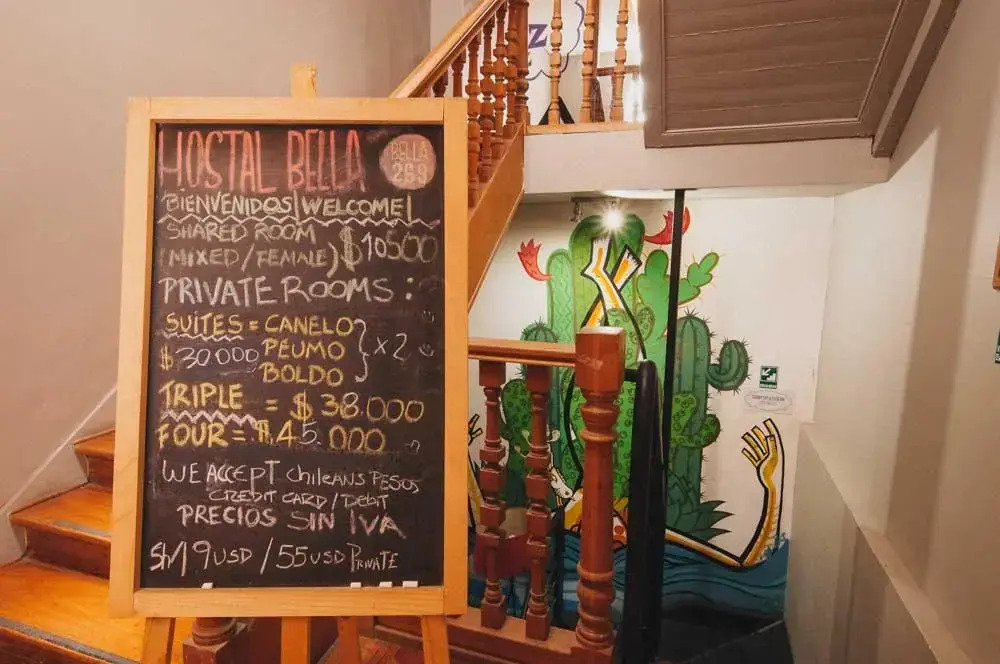 HOSTAL BELLA
BELLA 269
BIENVENIDOS/WELCOME!
SHARED ROOM
(MIXED/FEMALE) $10500
PRIVATE ROOMS:
SUITES = CANELO
$30000 PEUMO } x2
BOLDO
TRIPLE = $38.000
FOUR = $45.000
WE ACCEPT CHILEANS PESOS
CREDIT CARD/DEBIT
PRECIOS SIN IVA
SH/19USD/55USD PRIVATE
Z